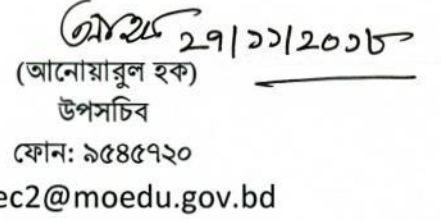 ২৭|১১|২০১৮
(আনোয়ারুল হক)
উপসচিব
ফোন: ৯৫৪৫৭২০
ec2@moedu.gov.bd